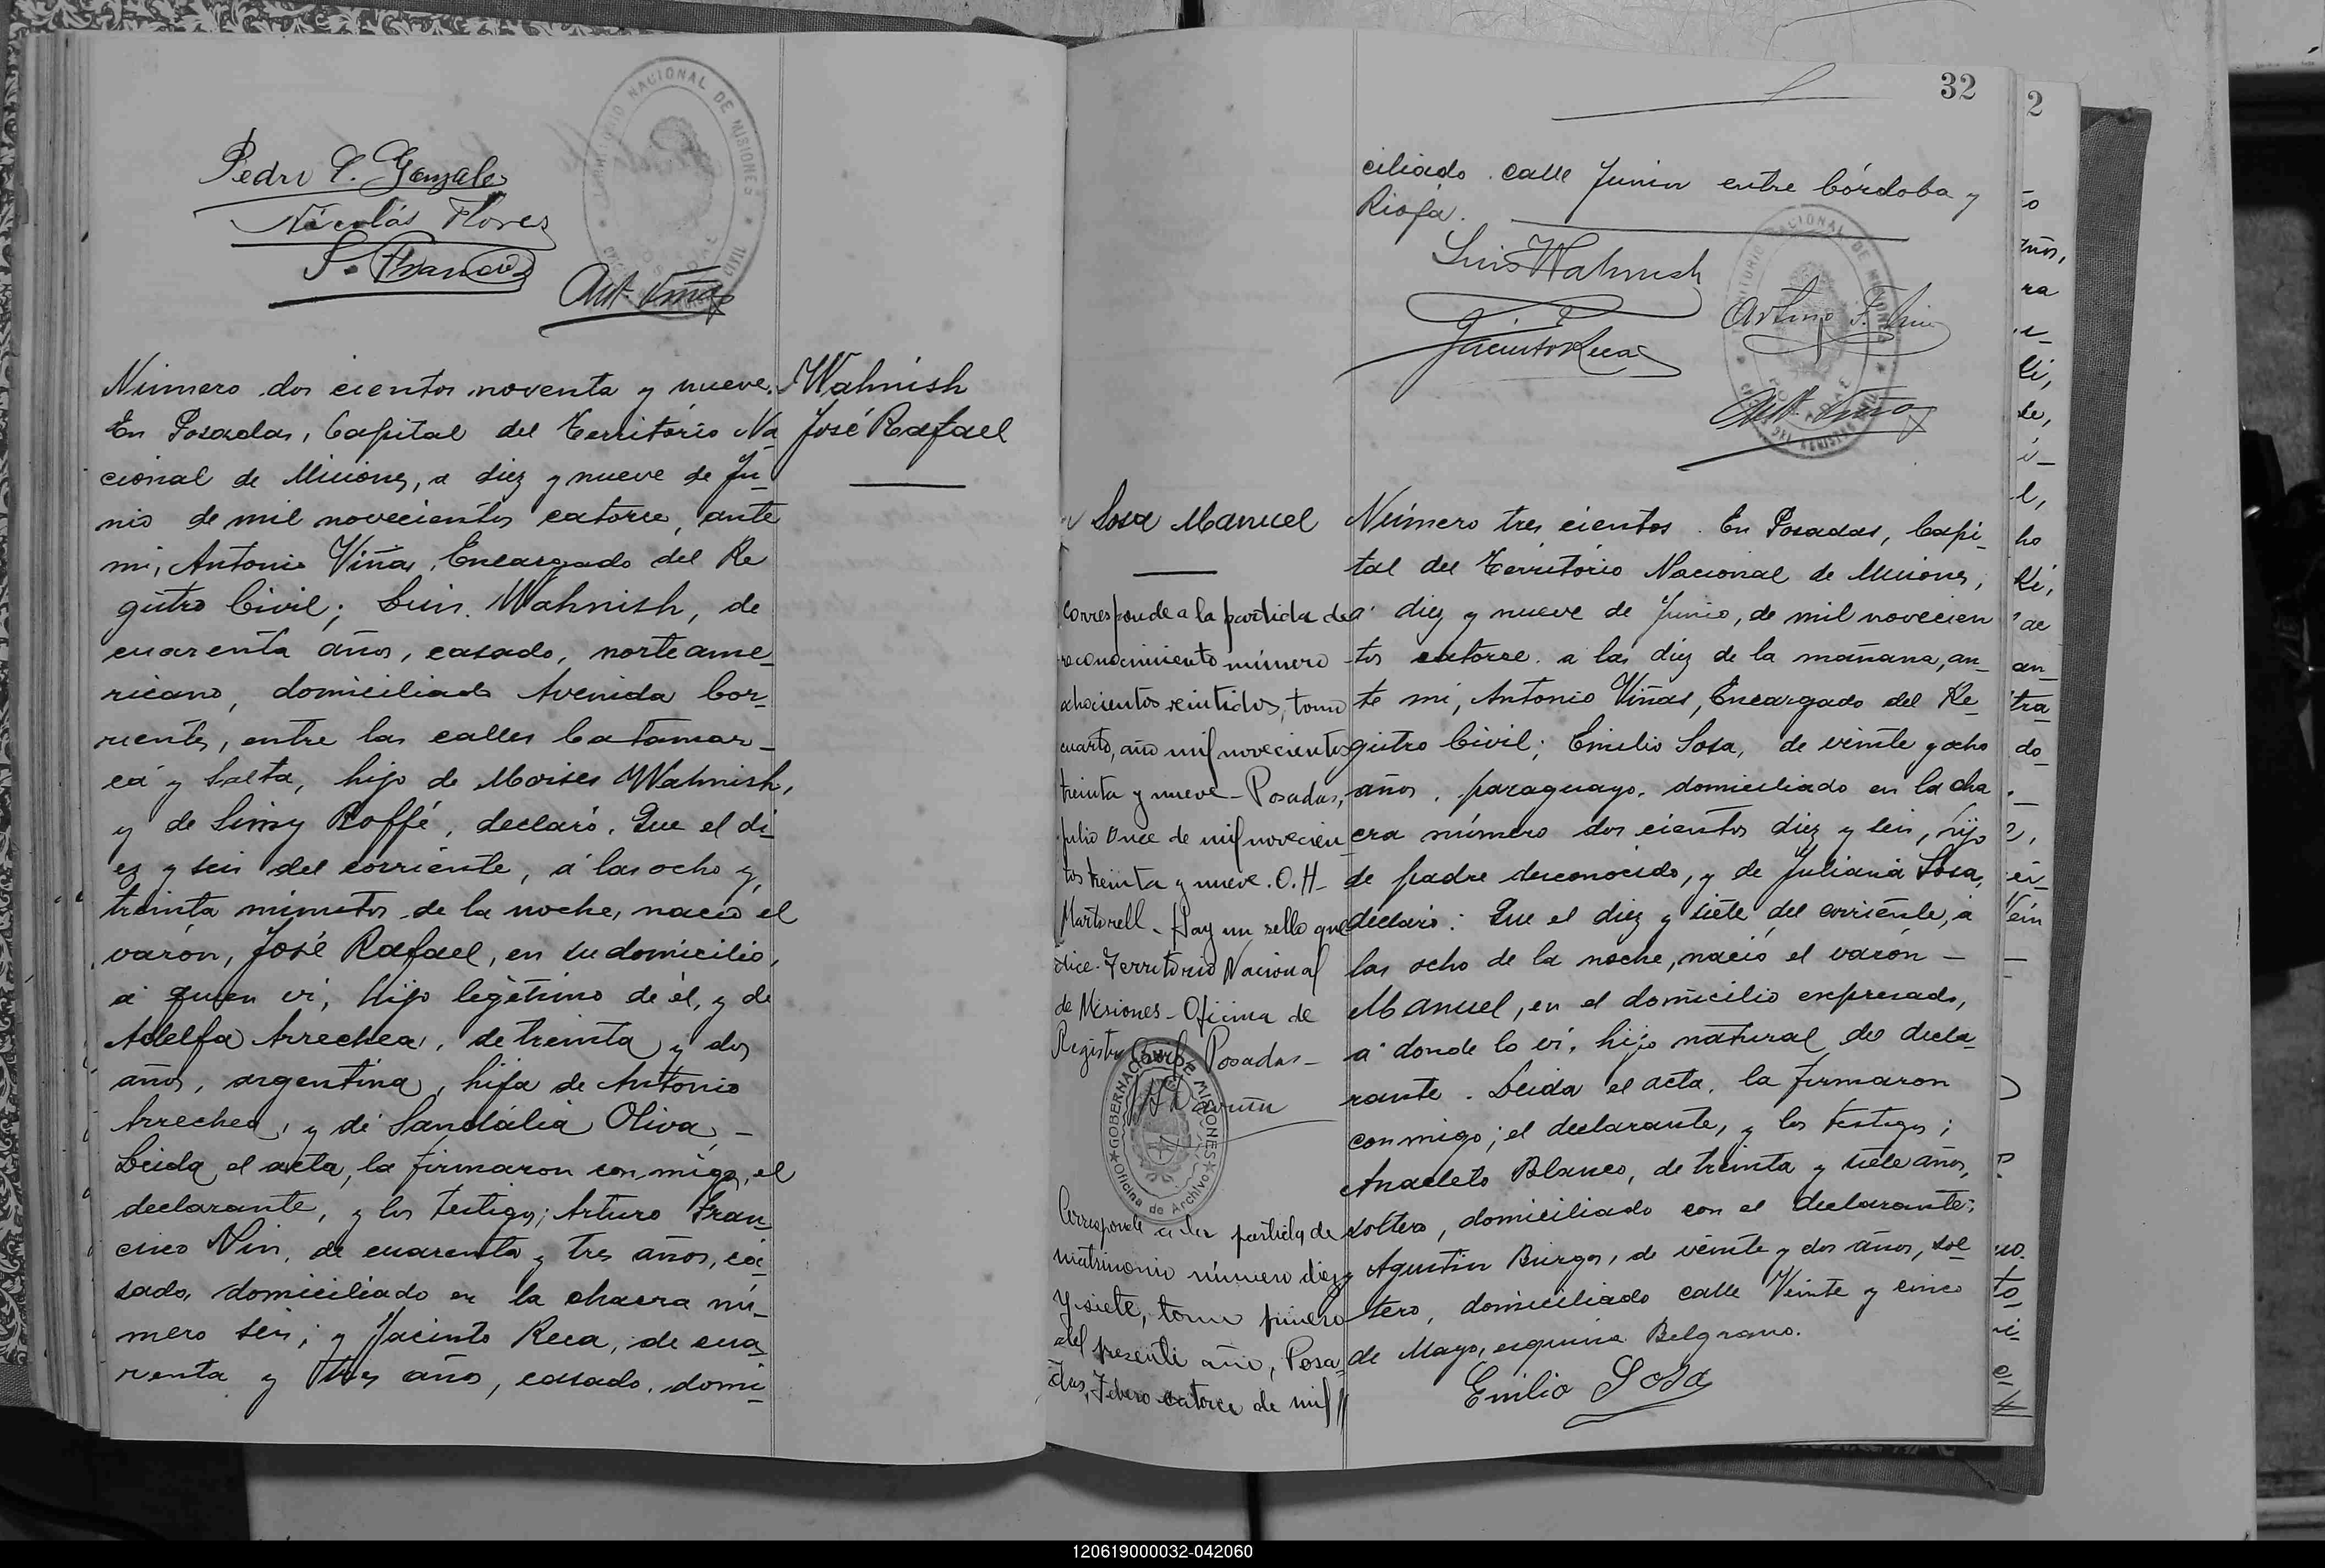 Pedro C. Gonzales
Nicolás Flores
TERRITORIO NACIONAL DE MISIONES
Ant. Viñas
Número dos cientos noventa y nueve.
En Posadas, Capital del Territorio Na
cional de Misiones, a diez y nueve de Ju_
nio de mil novecientos catorce, ante
mi, Antonio Viñas, Encargado del Re
gistro Civil; Luis Wahnish, de
cuarenta años, casado, norteame_
ricano, domiciliado Avenida Cor_
rientes, entre las calles Catamar_
ca y Salta, hijo de Moises Wahnish,
y de Simy Boffé, declaró. Que el di_
ez y seis del corriente, á las ocho y
treinta minutos de la noche, nació el
varón, José Rafael, en su domicilio,
á quien ví, hijo legítimo de él, y de
Adelfa Arrechea, de treinta y dos
años, argentina, hija de Antonio
Arrechea, y de Sandália Oliva, _
Leida el acta, la firmaron con migo, el
declarante, y los testigos; Arturo Fran_
cisco Nin, de cuarenta y tres años, ca_
sado, domiciliado en la chacra nú_
mero seis; y Jacinto Reca, de cua_
renta y tres años, casado, domi_
Wahnish
José Rafael
32
ciliado calle Junin entre Córdoba y
Rioja.
Luis Wahnish
TERRITORIO NACIONAL DE MISIONES
Arturo F. Nin
Jacinto Reca
Ant. Viñas
Sosa Manuel
Corresponde a la partida de
reconocimiento número
ochocientos veintidos, tomo
cuarto, año mil novecientos
treinta y nueve - Posadas,
julio once de mil novecien
tos treinta y nueve. O. H.
Martorell - Hay un sello que
dice - Territorio Nacional
de Misiones - Oficina de
Registro Civil Posadas -
GOBERNACION DE MISIONES
Oficina de Archivo
Corresponde a la partida de
matrimonio número diez
y siete, tomo primero
del presente año, Posa_
das, Febrero catorce de mil //
Número tres cientos. En Posadas, Capi_
tal del Territorio Nacional de Misiones,
a diez y nueve de Junio, de mil novecien
tos catorce. a las diez de la mañana, an_
te mi, Antonio Viñas, Encargado del Re_
gistro Civil; Emilio Sosa, de veinte y ocho
años, paraguayo, domiciliado en la cha
cra número dos cientos diez y seis, hijo
de padre desconocido, y de Juliana Sosa,
declaró: Que el diez y siete del corriente, á
las ocho de la noche, nació el varón _
Manuel, en el domicilio expresado,
a donde lo ví, hijo natural del decla_
rante. Leida el acta, la firmaron
conmigo; el declarante, y los testigos;
Anacleto Blanco, de treinta y siete años,
soltero, domiciliado con el declarante;
Agustin Burgos, de veinte y dos años, sol_
tero, domiciliado calle Veinte y cinco
de Mayo, esquina Belgrano.
Emilio Sosa
2
120619000032-042060